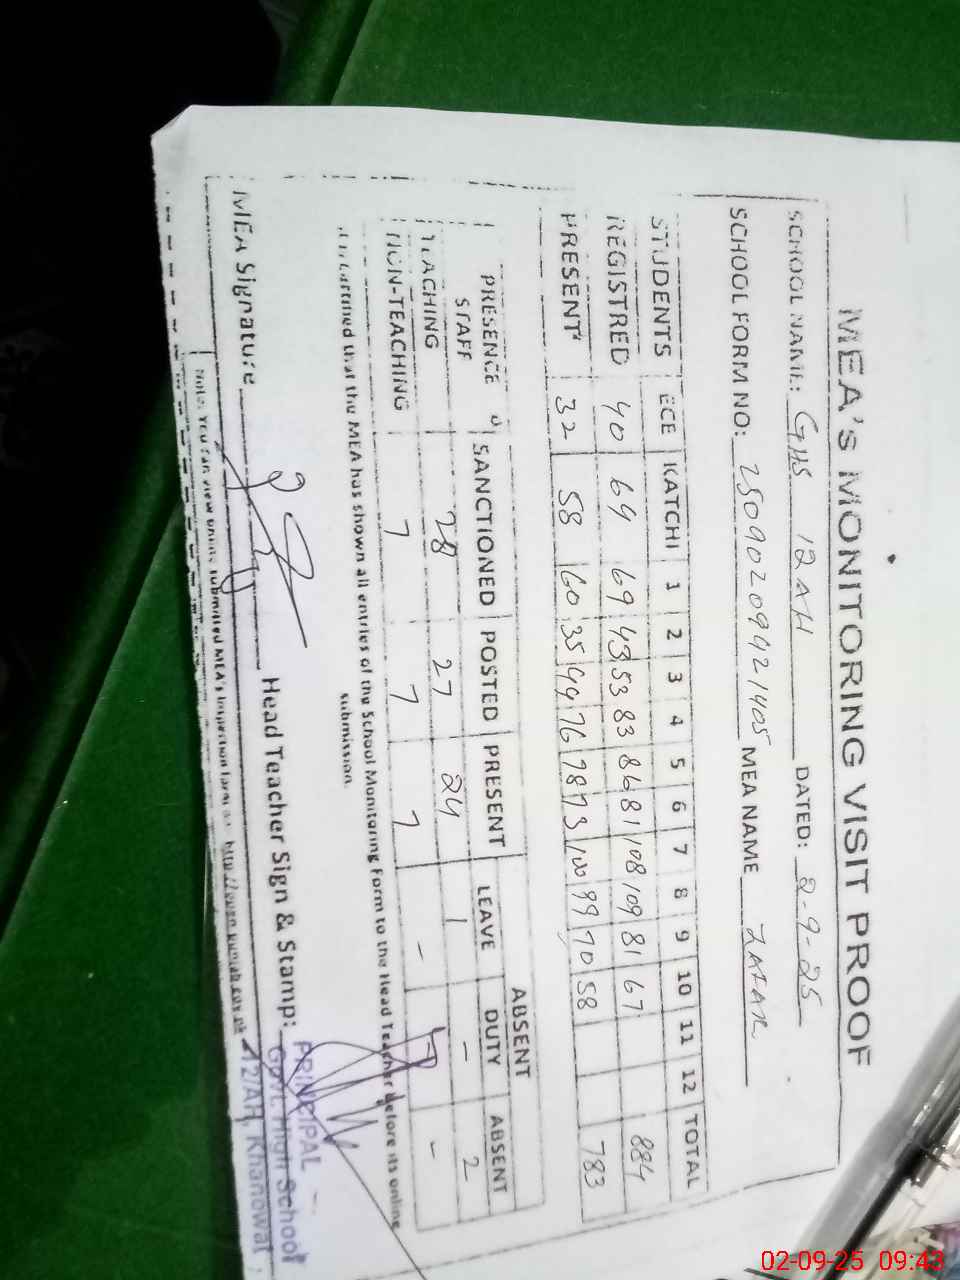 MEA's MONITORING VISIT PROOF
SCHOOL NAME: GHS 12 AH DATED: 2-9-25
SCHOOL FORM NO: 25090209421405 MEA NAME ZAFAR
STUDENTS ECE KATCHI 1 2 3 4 5 6 7 8 9 10 11 12 TOTAL
REGISTRED 40 64 69 43 53 83 86 81 108 109 81 67 884
PRESENT 32 58 60 35 44 76 78 73 100 99 70 58 783
PRESENCE SANCTIONED POSTED PRESENT ABSENT
STAFF LEAVE DUTY ABSENT
TEACHING 28 27 24 1 - 2
NON-TEACHING 7 7 7 - -
certified that the MEA has shown all entries of the School Monitoring Form to the Head Teacher before its online
submission.
MEA Signature Head Teacher Sign & Stamp:
PRINCIPAL
Govt. High School
12/AH, Khanewal
Note: You can view online submitted MEA's Inspection form
02-09-25 09:43